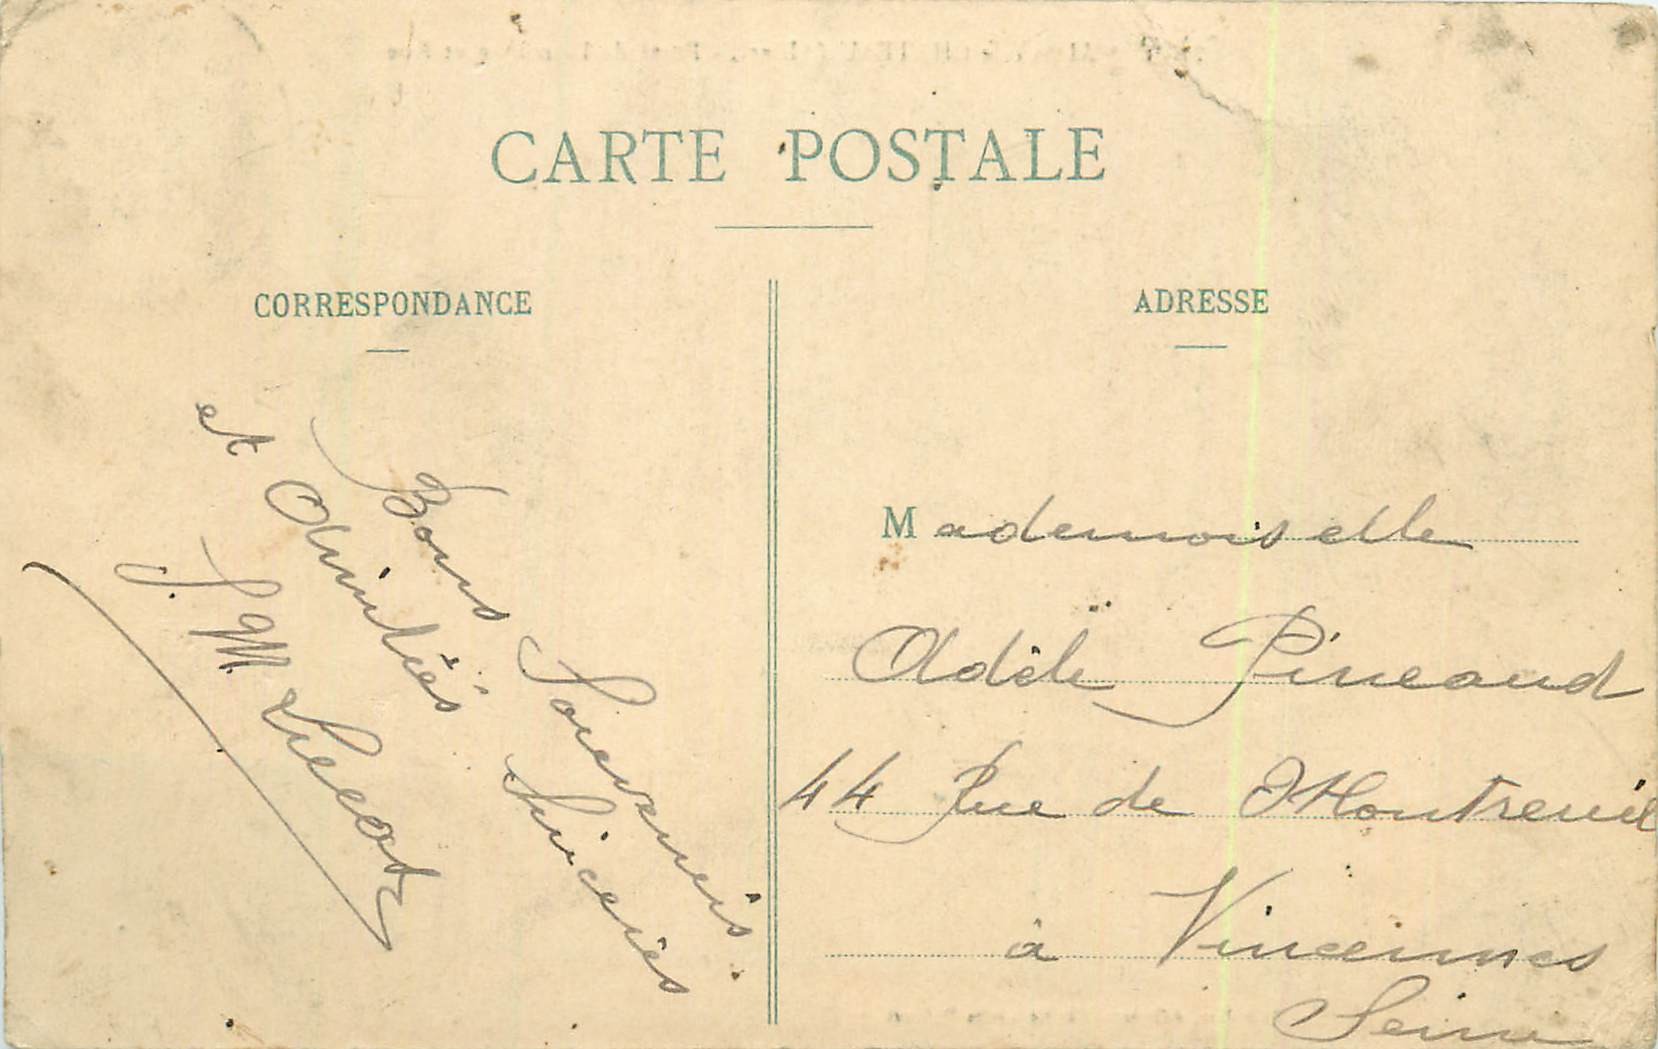 CARTE POSTALE
CORRESPONDANCE
Bons Souvenirs
et Amitiés Sincères
J. M. Lucot
ADRESSE
Mademoiselle
Adèle Pineaud
44 Rue de Montreuil
à Vincennes
Seine